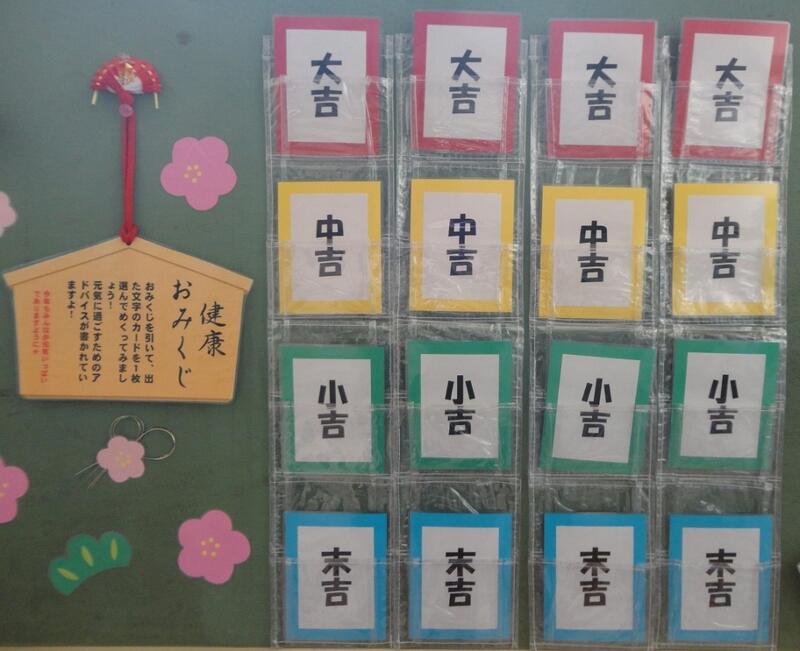 健康
おみくじ
おみくじを引いて、出
た文字のカードを1枚
選んでめくってみまし
ょう！
元気に過ごすためのア
ドバイスが書かれてい
ますよ！
今年もみんなが元気いっぱい
でありますように★
大吉
大吉
大吉
大吉
中吉
中吉
中吉
中吉
小吉
小吉
小吉
小吉
末吉
末吉
末吉
末吉